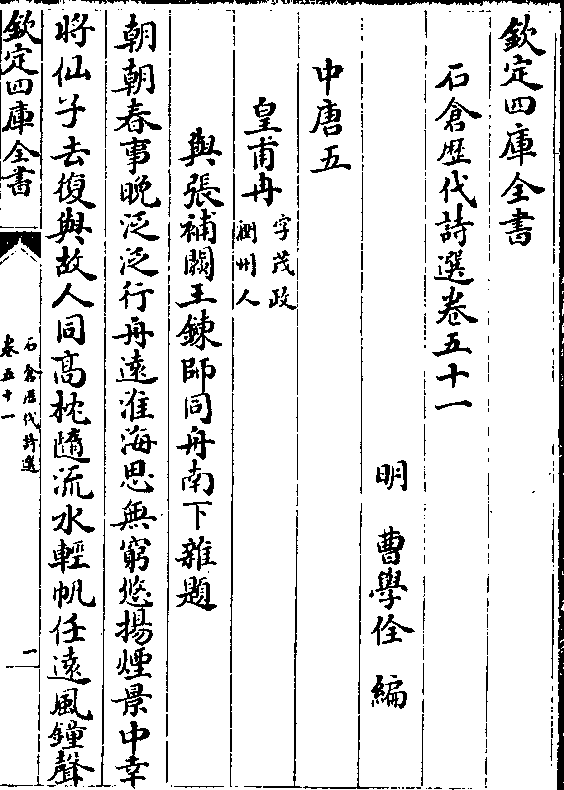 欽定四庫全書
石倉歴代詩選卷五十一
明　曹學佺　編
中唐五
皇甫冉
字茂政
潤州人
與張補闕王錬師同舟南下雜題
朝朝春事晚泛泛行舟遠淮海思無窮悠揚煙景中幸
將仙子去復與故人同高枕隨流水輕帆任遠風鐘聲
欽定四庫全書
石倉歴代詩選
卷五十一
一